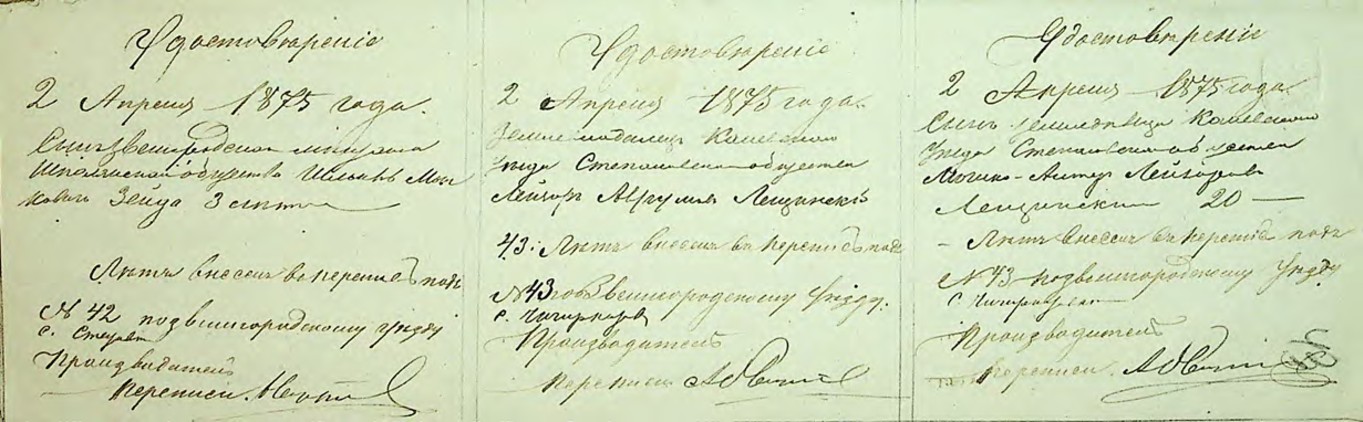 Удостовѣреніе
2 Апреля 1875 года.
Сынъ Звенигородскаго мещанина
Шполянскаго общества
Зейда 3 лѣтъ
Лѣтъ внесенъ въ перепись подъ
№ 42 по Звенигородскому уѣзду
с.
Производитель
переписи.
Удостовѣреніе
2 Апреля 1875 года.
Каневскаго
уезда Степановскаго общества
Лейзоръ Лещинскъ
43. Лѣтъ внесенъ въ перепись подъ
№ 43 по Звенигородскому уѣзду.
с.
Производитель
переписи
Удостовѣреніе
2 Апреля 1875 года.
Сынъ земледельца Каневскаго
уезда Степановскаго общества
Мошко- Лейзоровъ
Лещинскій 20 —
- Лѣтъ внесенъ въ перепись подъ
№ 43 по Звенигородскому уѣзду
с.
Производитель
переписи.